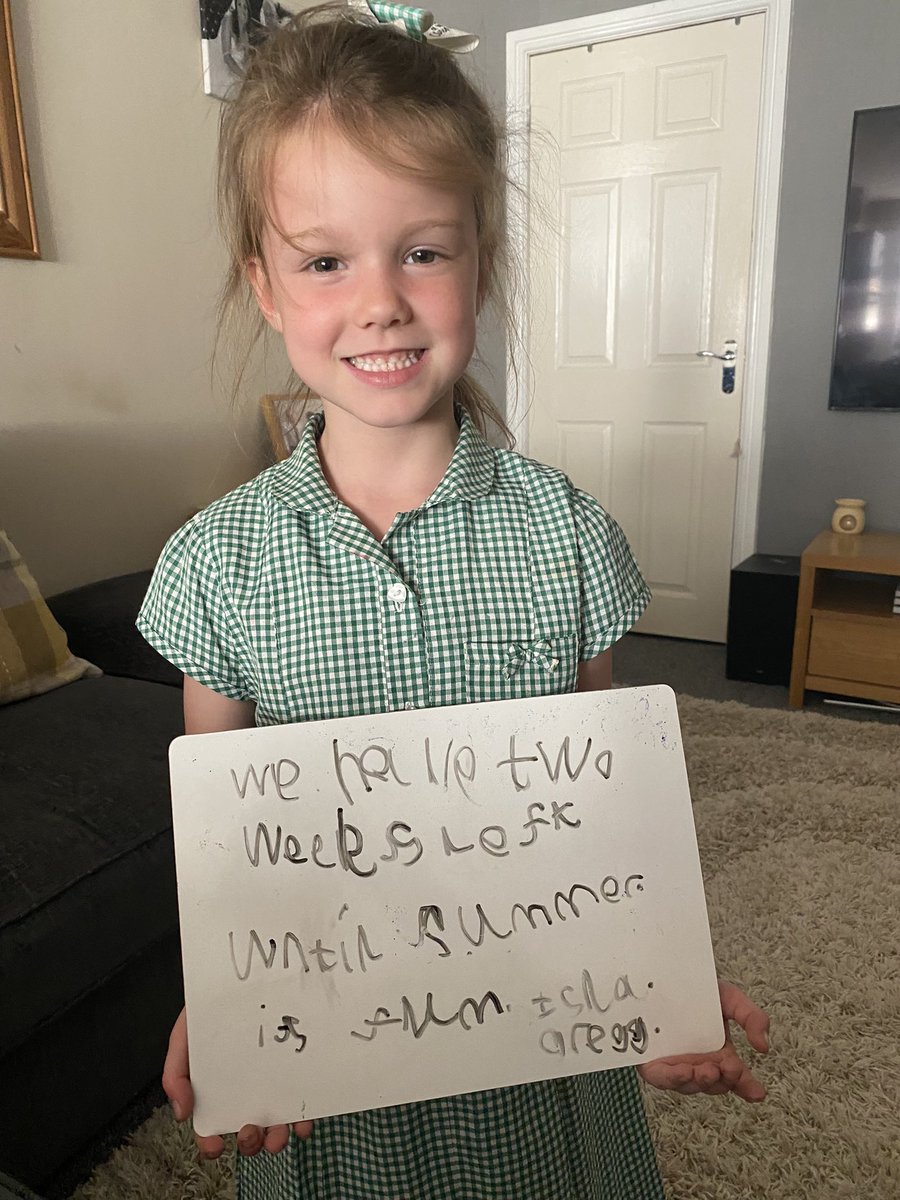 we have two
weeks left
until summer.
is fun. isla.